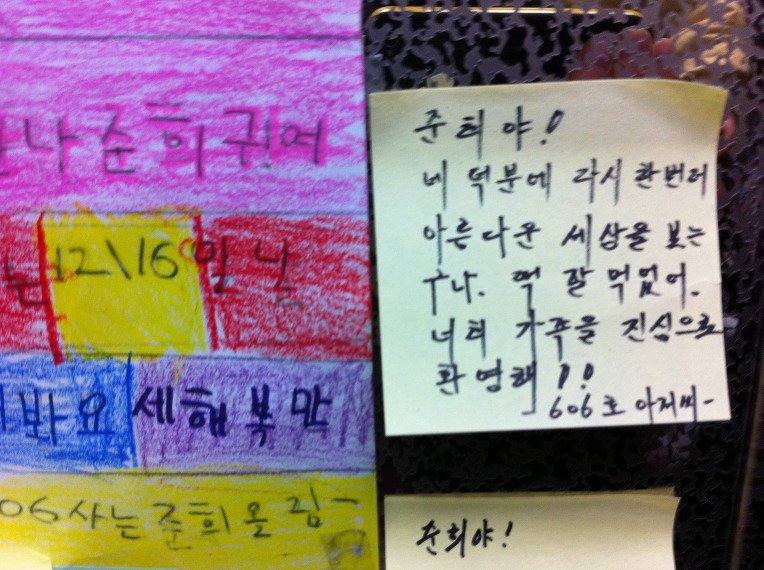 나 준희 귀여
는 12\16일 날
봐요 세해복만
06사는준희올림-
준희야!
네 덕분에 다시 한번더
아른다운 세상을 보는
구나. 떡 잘 먹었어.
너희 가족을 진심으로
환영해!!
606호 아저씨-
준희야!